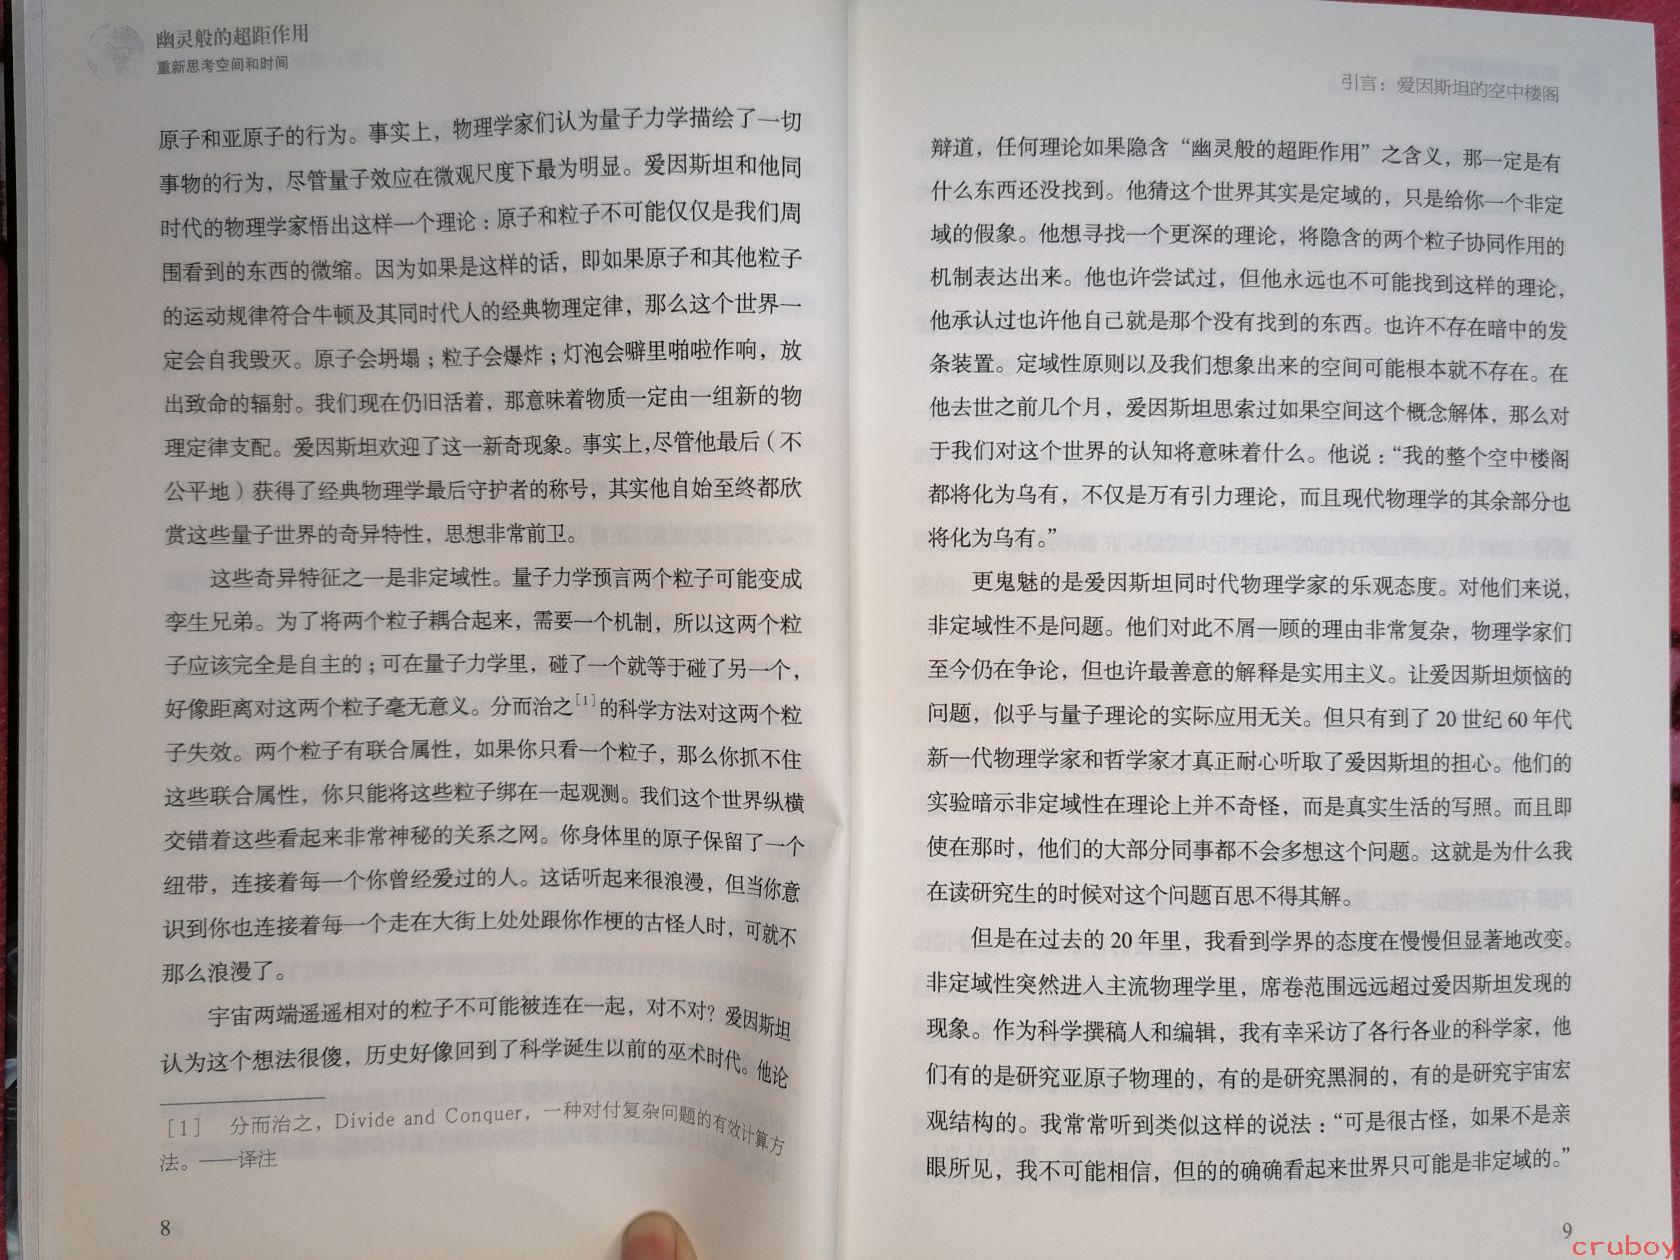 幽灵般的超距作用
重新思考空间和时间
原子和亚原子的行为。事实上，物理学家们认为量子力学描绘了一切
事物的行为，尽管量子效应在微观尺度下最为明显。爱因斯坦和他同
时代的物理学家悟出这样一个理论：原子和粒子不可能仅仅是我们周
围看到的东西的微缩。因为如果是这样的话，即如果原子和其他粒子
的运动规律符合牛顿及其同时代人的经典物理定律，那么这个世界一
定会自我毁灭。原子会坍塌；粒子会爆炸；灯泡会噼里啪啦作响，放
出致命的辐射。我们现在仍旧活着，那意味着物质一定由一组新的物
理定律支配。爱因斯坦欢迎了这一新奇现象。事实上，尽管他最后（不
公平地）获得了经典物理学最后守护者的称号，其实他自始至终都欣
赏这些量子世界的奇异特性，思想非常前卫。
这些奇异特征之一是非定域性。量子力学预言两个粒子可能变成
孪生兄弟。为了将两个粒子耦合起来，需要一个机制，所以这两个粒
子应该完全是自主的；可在量子力学里，碰了一个就等于碰了另一个，
好像距离对这两个粒子毫无意义。分而治之[1]的科学方法对这两个粒
子失效。两个粒子有联合属性，如果你只看一个粒子，那么你抓不住
这些联合属性，你只能将这些粒子绑在一起观测。我们这个世界纵横
交错着这些看起来非常神秘的关系之网。你身体里的原子保留了一个
纽带，连接着每一个你曾经爱过的人。这话听起来很浪漫，但当你意
识到你也连接着每一个走在大街上处处跟你作梗的古怪人时，可就不
那么浪漫了。
宇宙两端遥遥相对的粒子不可能被连在一起，对不对？爱因斯坦
认为这个想法很傻，历史好像回到了科学诞生以前的巫术时代。他论
[1] 分而治之，Divide and Conquer，一种对付复杂问题的有效计算方
法。——译注
8
引言：爱因斯坦的空中楼阁
辩道，任何理论如果隐含“幽灵般的超距作用”之含义，那一定是有
什么东西还没找到。他猜这个世界其实是定域的，只是给你一个非定
域的假象。他想寻找一个更深的理论，将隐含的两个粒子协同作用的
机制表达出来。他也许尝试过，但他永远也不可能找到这样的理论，
他承认过也许他自己就是那个没有找到的东西。也许不存在暗中的发
条装置。定域性原则以及我们想象出来的空间可能根本就不存在。在
他去世之前几个月，爱因斯坦思索过如果空间这个概念解体，那么对
于我们对这个世界的认知将意味着什么。他说：“我的整个空中楼阁
都将化为乌有，不仅是万有引力理论，而且现代物理学的其余部分也
将化为乌有。”
更鬼魅的是爱因斯坦同时代物理学家的乐观态度。对他们来说，
非定域性不是问题。他们对此不屑一顾的理由非常复杂，物理学家们
至今仍在争论，但也许最善意的解释是实用主义。让爱因斯坦烦恼的
问题，似乎与量子理论的实际应用无关。但只有到了20世纪60年代
新一代物理学家和哲学家才真正耐心听取了爱因斯坦的担心。他们的
实验暗示非定域性在理论上并不奇怪，而是真实生活的写照。而且即
使在那时，他们的大部分同事都不会多想这个问题。这就是为什么我
在读研究生的时候对这个问题百思不得其解。
但是在过去的20年里，我看到学界的态度在慢慢但显著地改变。
非定域性突然进入主流物理学里，席卷范围远远超过爱因斯坦发现的
现象。作为科学撰稿人和编辑，我有幸采访了各行各业的科学家，他
们有的是研究亚原子物理的，有的是研究黑洞的，有的是研究宇宙宏
观结构的。我常常听到类似这样的说法：“可是很古怪，如果不是亲
眼所见，我不可能相信，但的的确确看起来世界只可能是非定域的。”
9
cruboy